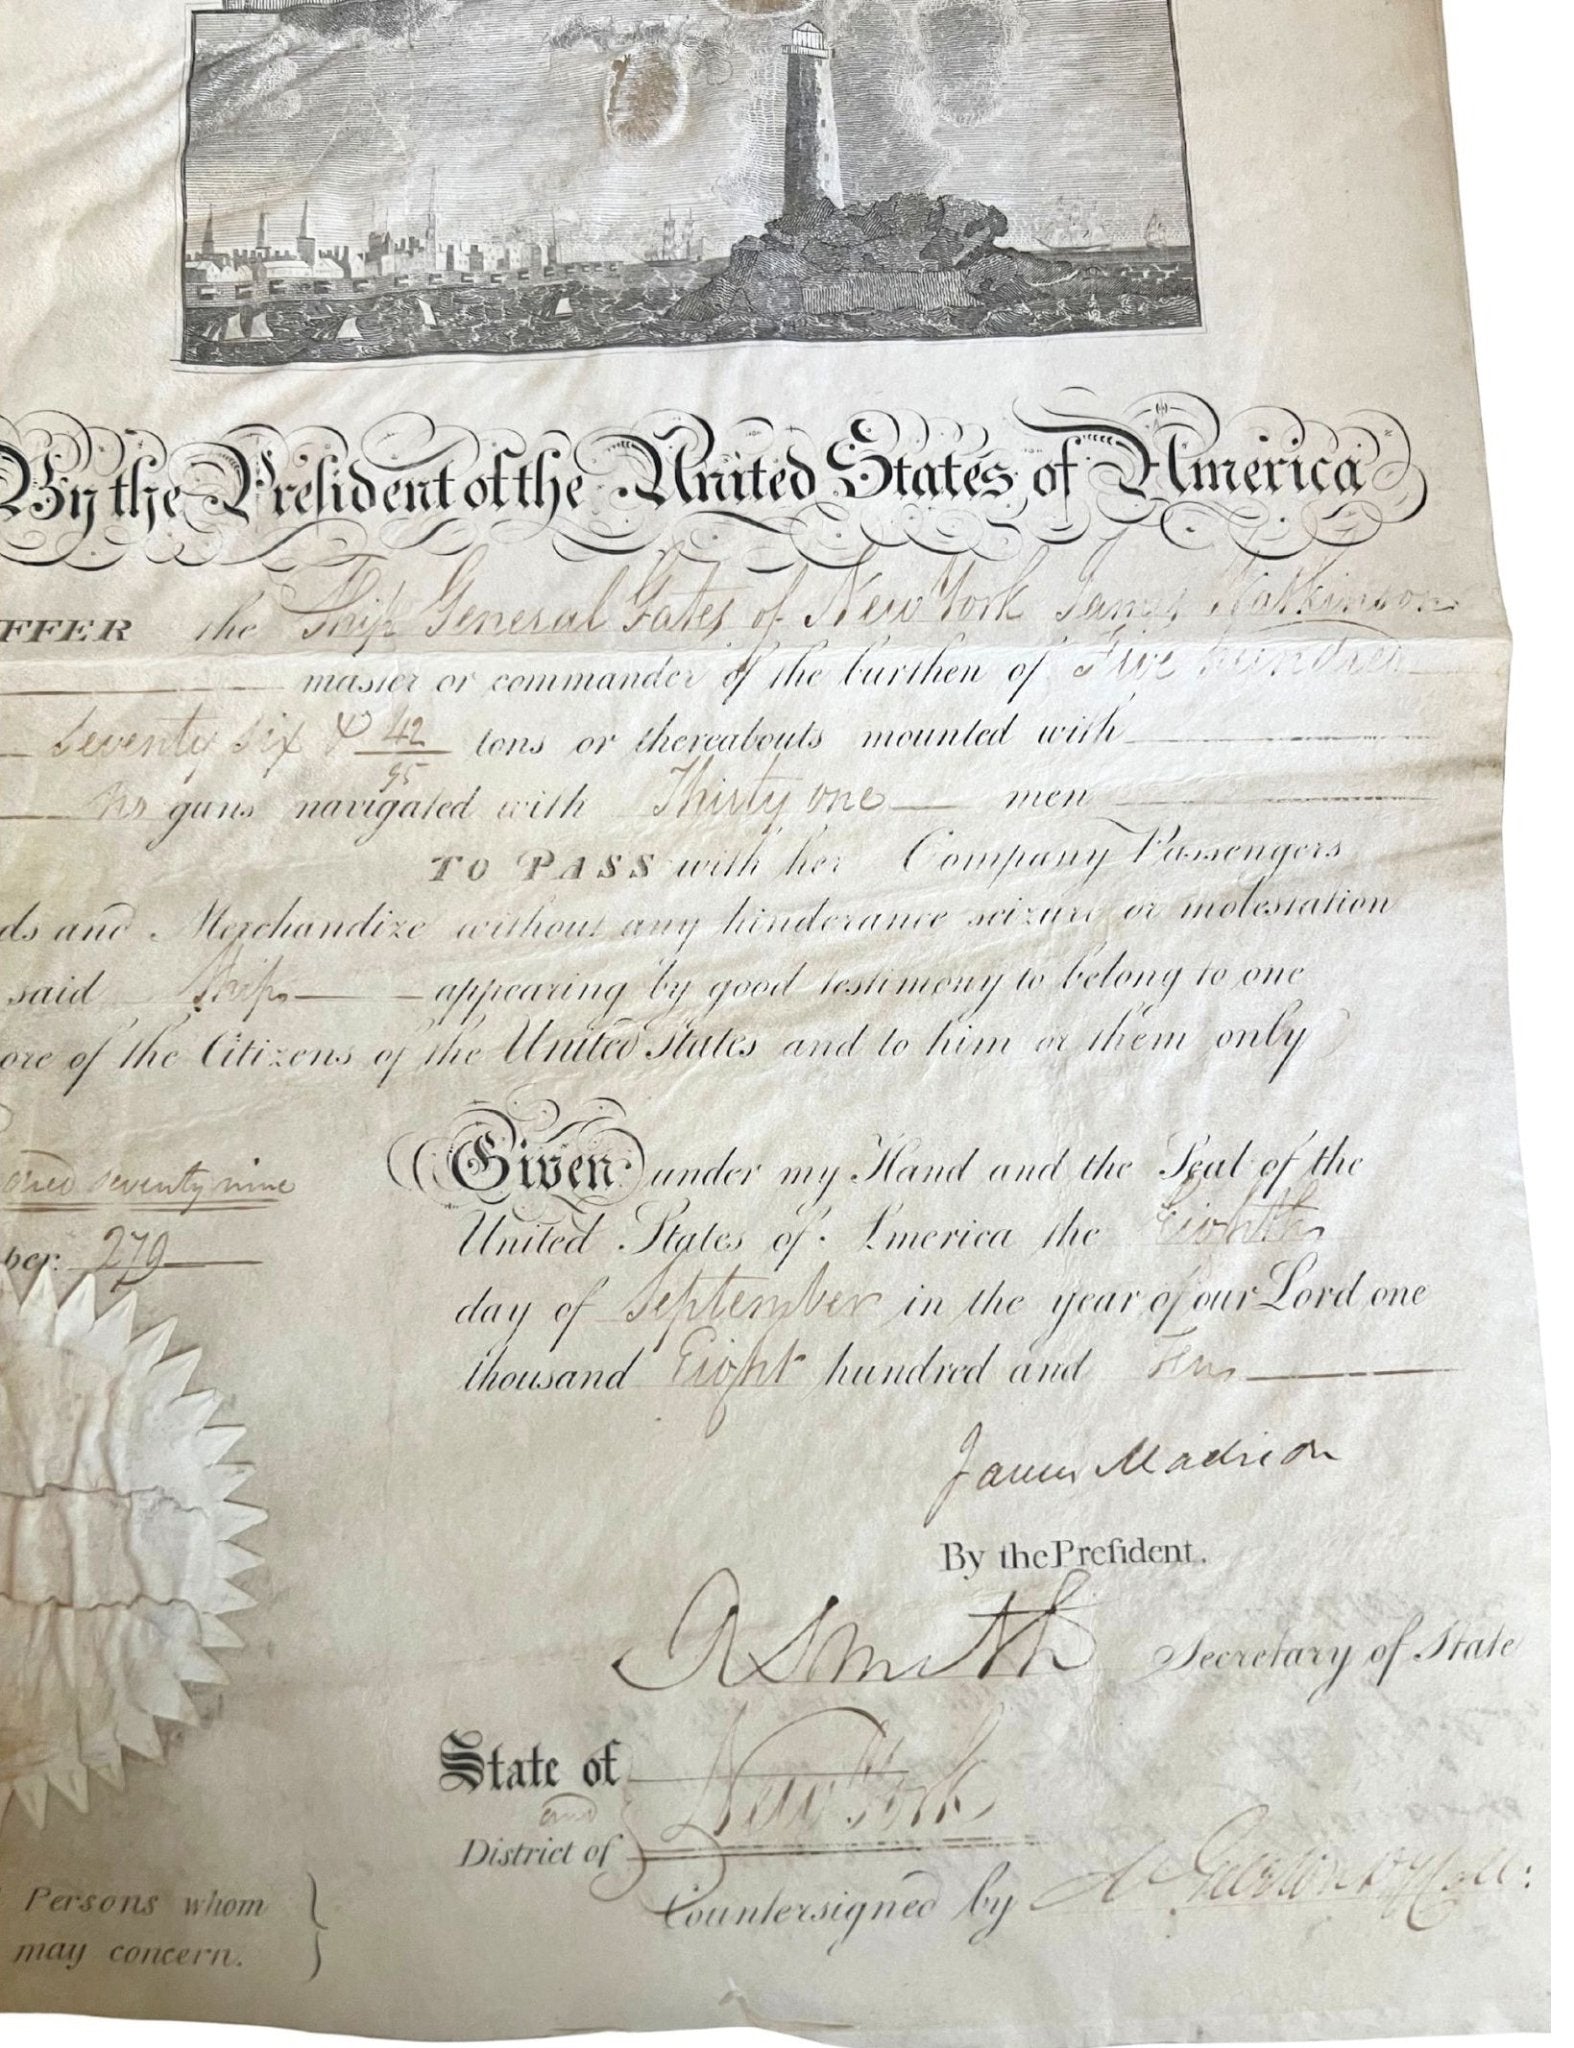 By the President of the United States of America
FFER the Ship General Gates of New York James Watkinson
master or commander of the burthen of Five hundred
seventy six & 42/95 tons or thereabouts mounted with
no guns navigated with Thirty one men
TO PASS with her Company Passengers
ds and Merchandize without any hinderance seizure or molestation
said Ship appearing by good testimony to belong to one
ore of the Citizens of the United States and to him or them only
dred seventy nine
ber. 279
Given under my Hand and the Seal of the
United States of America the Eighth
day of September in the year of our Lord one
thousand Eight hundred and Ten
James Madison
By the President.
R Smith Secretary of State
State of
and New York
District of
Countersigned by
Persons whom
may concern.